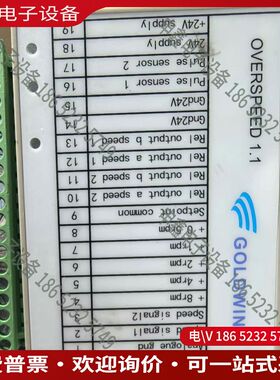 电子设备
OVERSPEED 1.1
GOLDWIN
19 +24V supply
18 24V supply
17 Pulse sensor 2
16 Pulse sensor 1
15 Gnd24V
14 Gnd24V
13 Rel output b speed 1
12 Rel output a speed 1
11 Rel output b speed 2
10 Rel output a speed 2
9 Setpo common
8 + .5rpm
7 + 1rpm
6 + 2rpm
5 + 4rpm
4 + 8rpm
3 Speed signal2
2 signal1
1 gnd
电\V 186 5232 57
发票 · 欢迎询价 · 可一站式